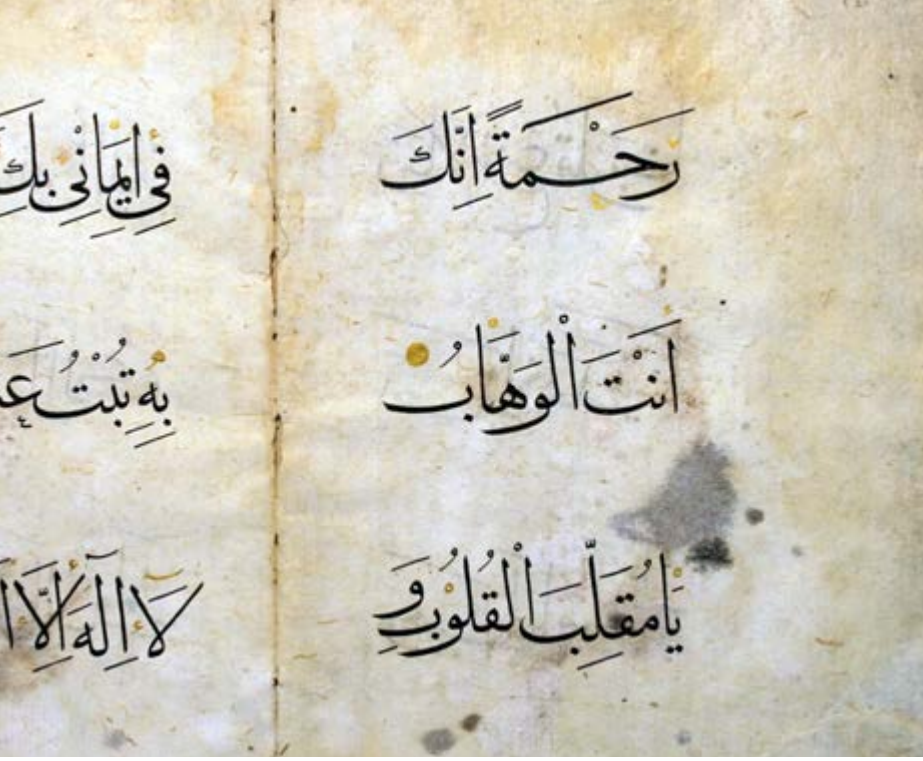 رَحْمَةً اِنَّكَ
اَنْتَ الْوَهَّابُ
يَا مُقَلِّبَ الْقُلُوبِ وَ
فِي اِيمَانِي بِكَ
بِهِ تُبْتُ
لَا اِلٰهَ اِلَّا